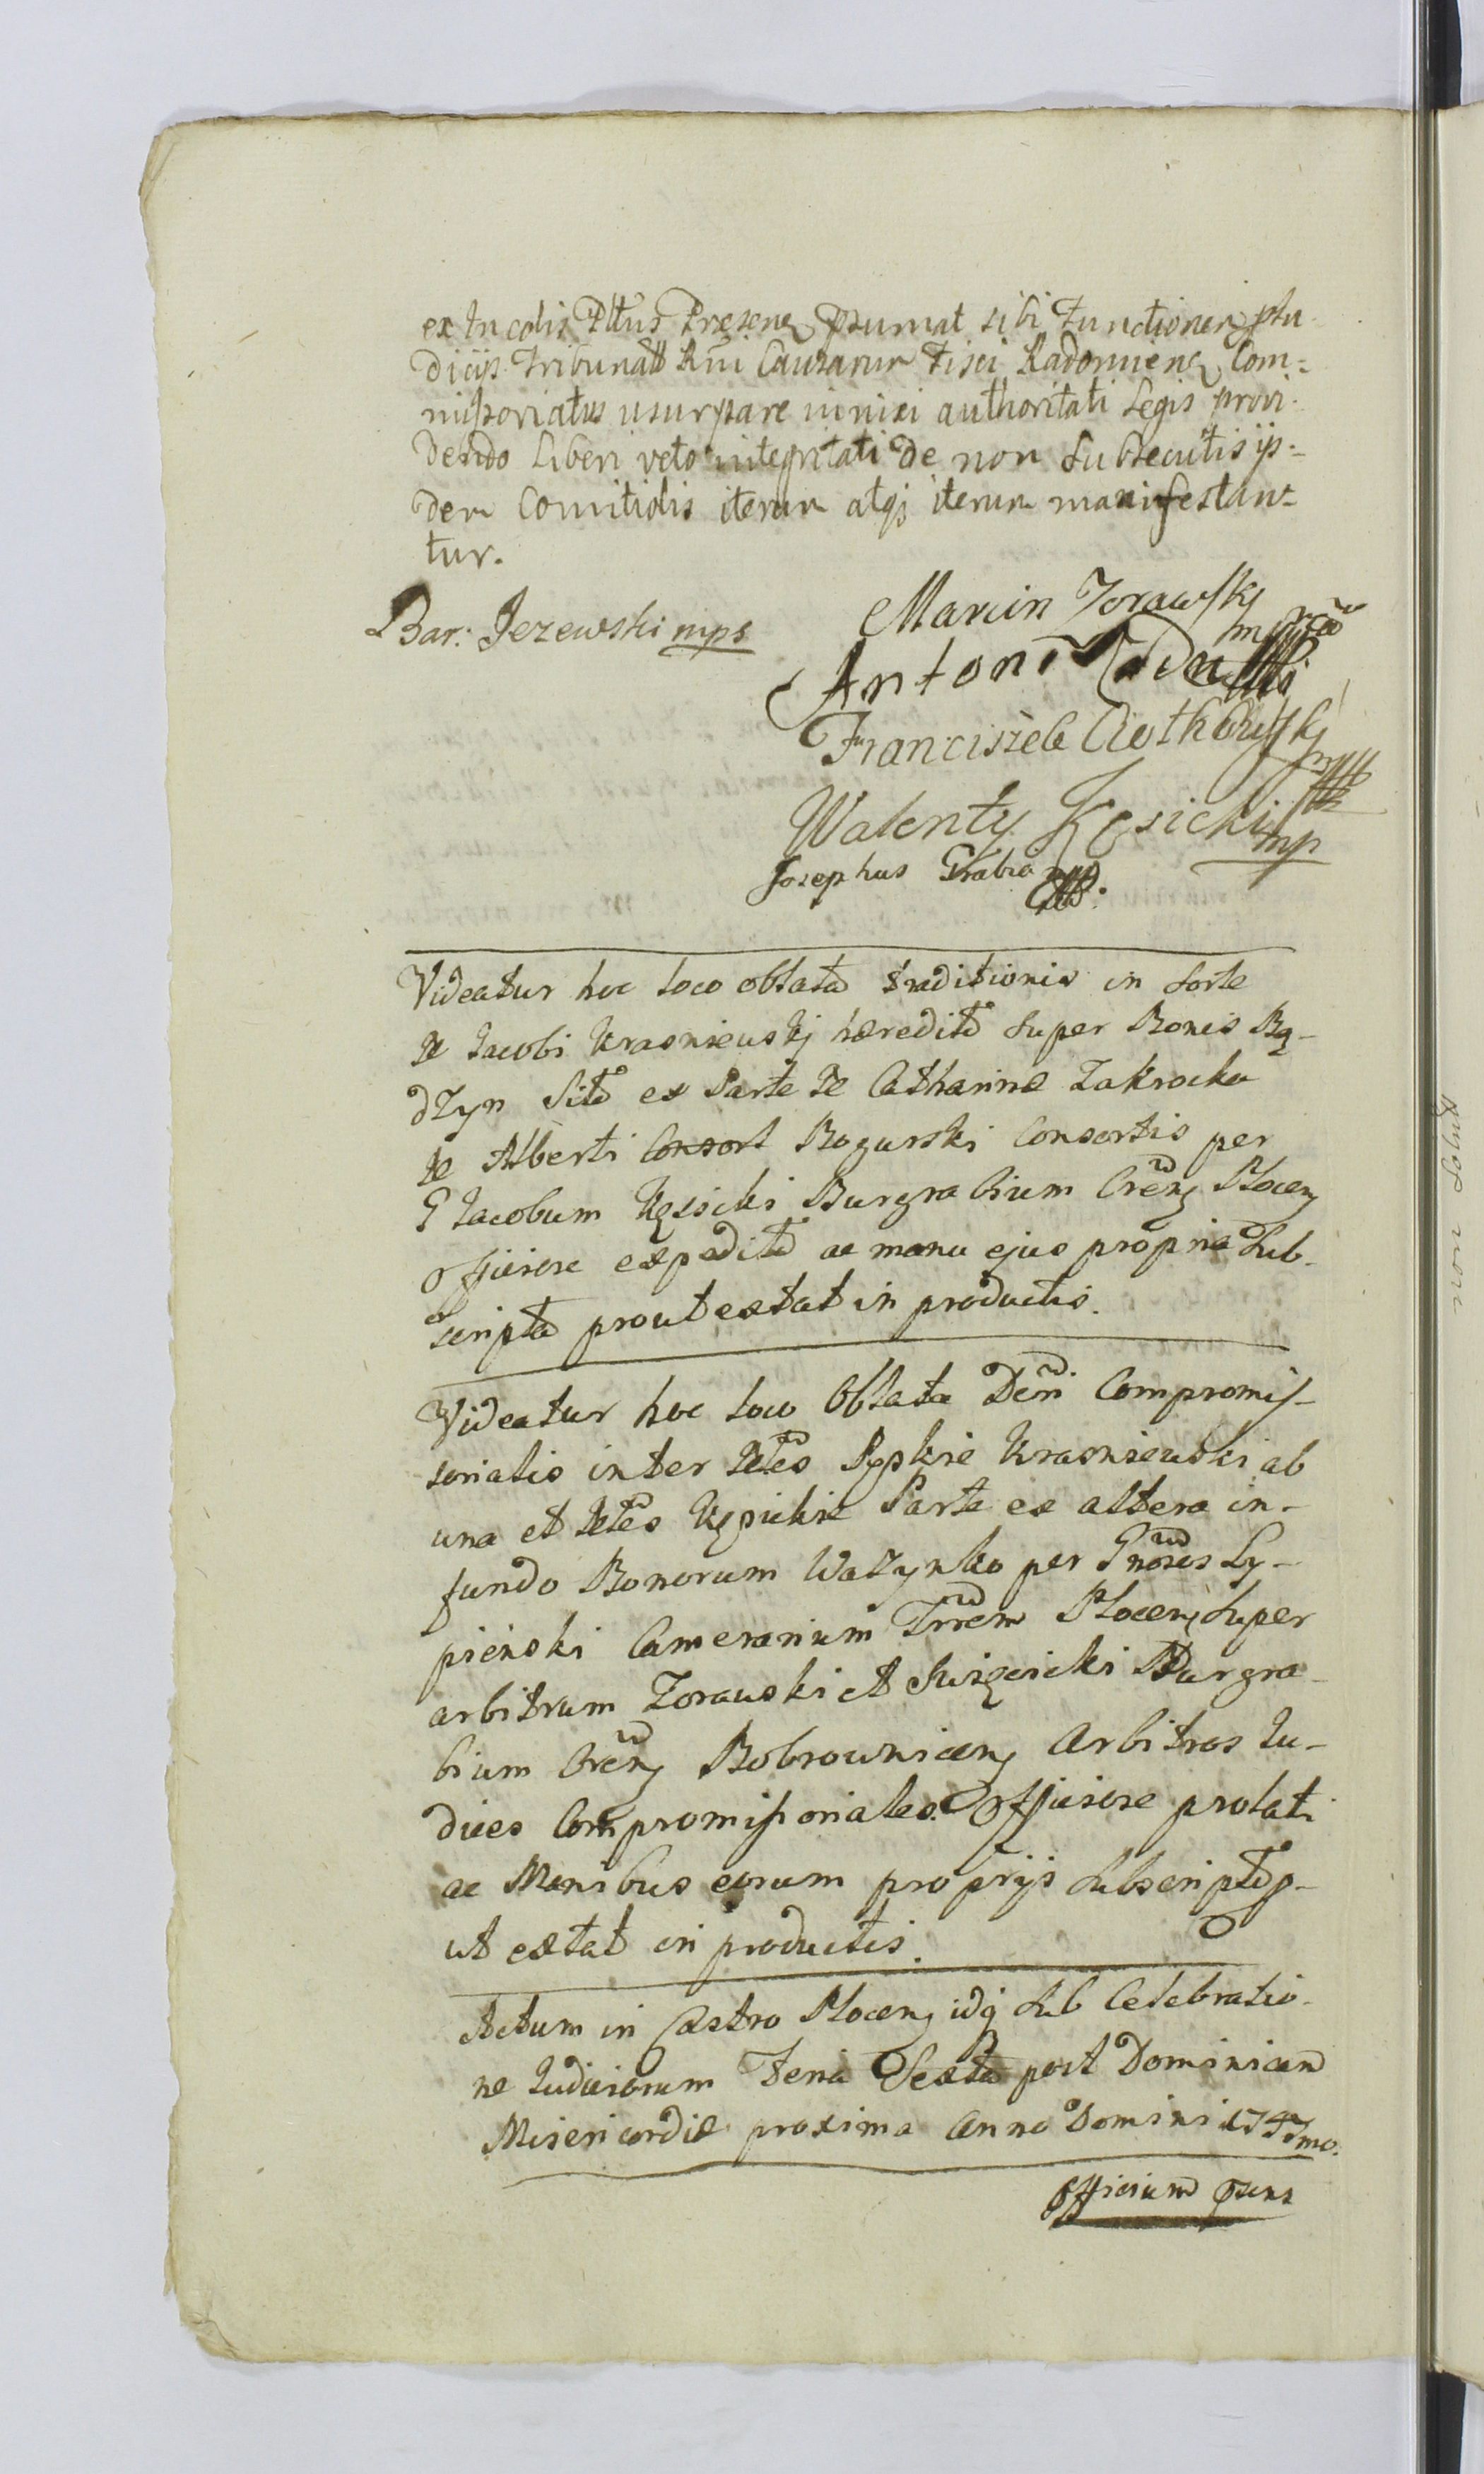 ex Incolis Pltus Presens psumat sibi functionem
dicijs Tribunall Rni Causarum Fisci Radomiens Com=
missoriatus usurpare innixi authoritati Legis provi-
dendo Liberi veto integritati de non subsecutis ijs=
dem Comitiolis iterum atqj iterum manifestan=
tur.
Bar: Jezewski mps
Marcin Zorawskj
Antoni
Franciszek
Walenty Kęsicki mp
Josephus Grabia
Videatur hoc loco oblata traditionis in sorte
Jacobi Krasniewskj hæredita super Bonis Bą-
dzyn Sita ex Parte Catharinæ Zakrocka
Alberti Consort Bogurski Consortis per
G Jacobum Kęsicki Burgrabium Crem Plocen
officiose expedita ac manu ejus propria sub-
scripta prout extat in productis.
Videatur hoc loco Oblata Dcri Compromis-
sorialis inter Sypkie Krasniewski ab
una et Kęsickie Parte ex altera in-
fundo Bonorum Wazynko per Gnosos Ly-
pienski Camerarium Trrem Plocen super
arbitrum Zorawski et Swięcicki Burgra-
bium Crem Bobrownicen Arbitros Iu-
dices Compromissoriales Officiose prolati
ac Manibus eorum proprijs subscripta p-
ut extat in productis.
Actum in Castro Plocen idq sub Celebratio-
ne Iudiciorum Feria Sexta post Dominicam
Misericordiæ proxima Anno Domini 1747mo.
Officium psens